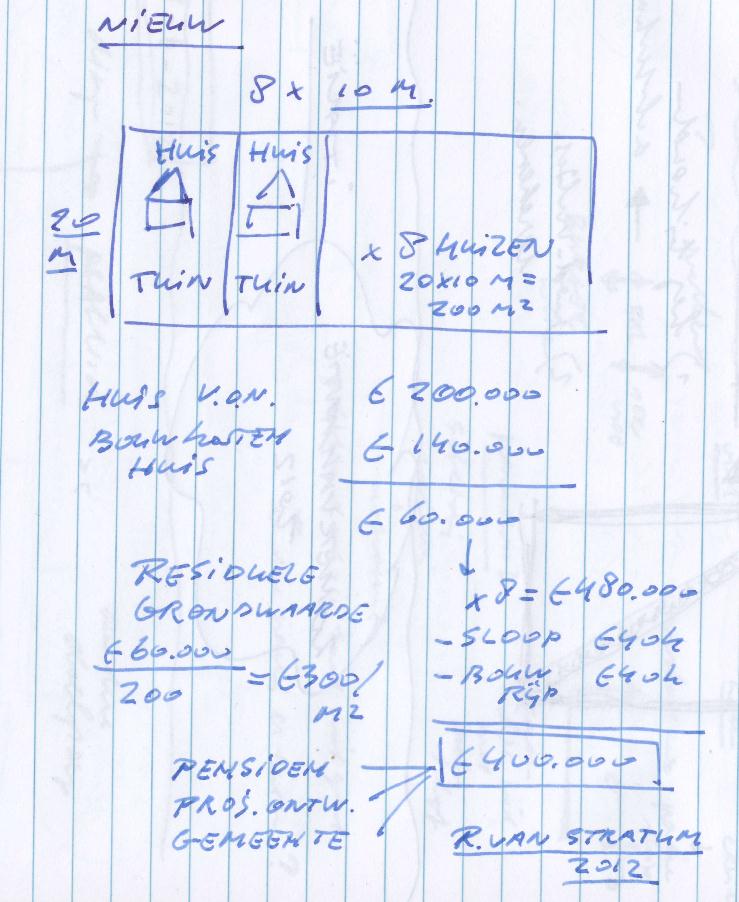 NIEUW
8 x 10 M.
HUIS HUIS
20
M
x 8 HUIZEN
TUIN TUIN 20X10 M =
200 M²
HUIS V.O.N. € 200.000
BOUWKOSTEN € 140.000
HUIS
€ 60.000
RESIDUELE
GRONDWAARDE
x 8 = € 480.000
€ 60.000
200
= € 300/
M2
- SLOOP € 40k
- BOUW € 40k
RIJP
€ 400.000
PENSIOEN
PROJ. ONTW.
GEMEENTE
R. VAN STRATUM
2012